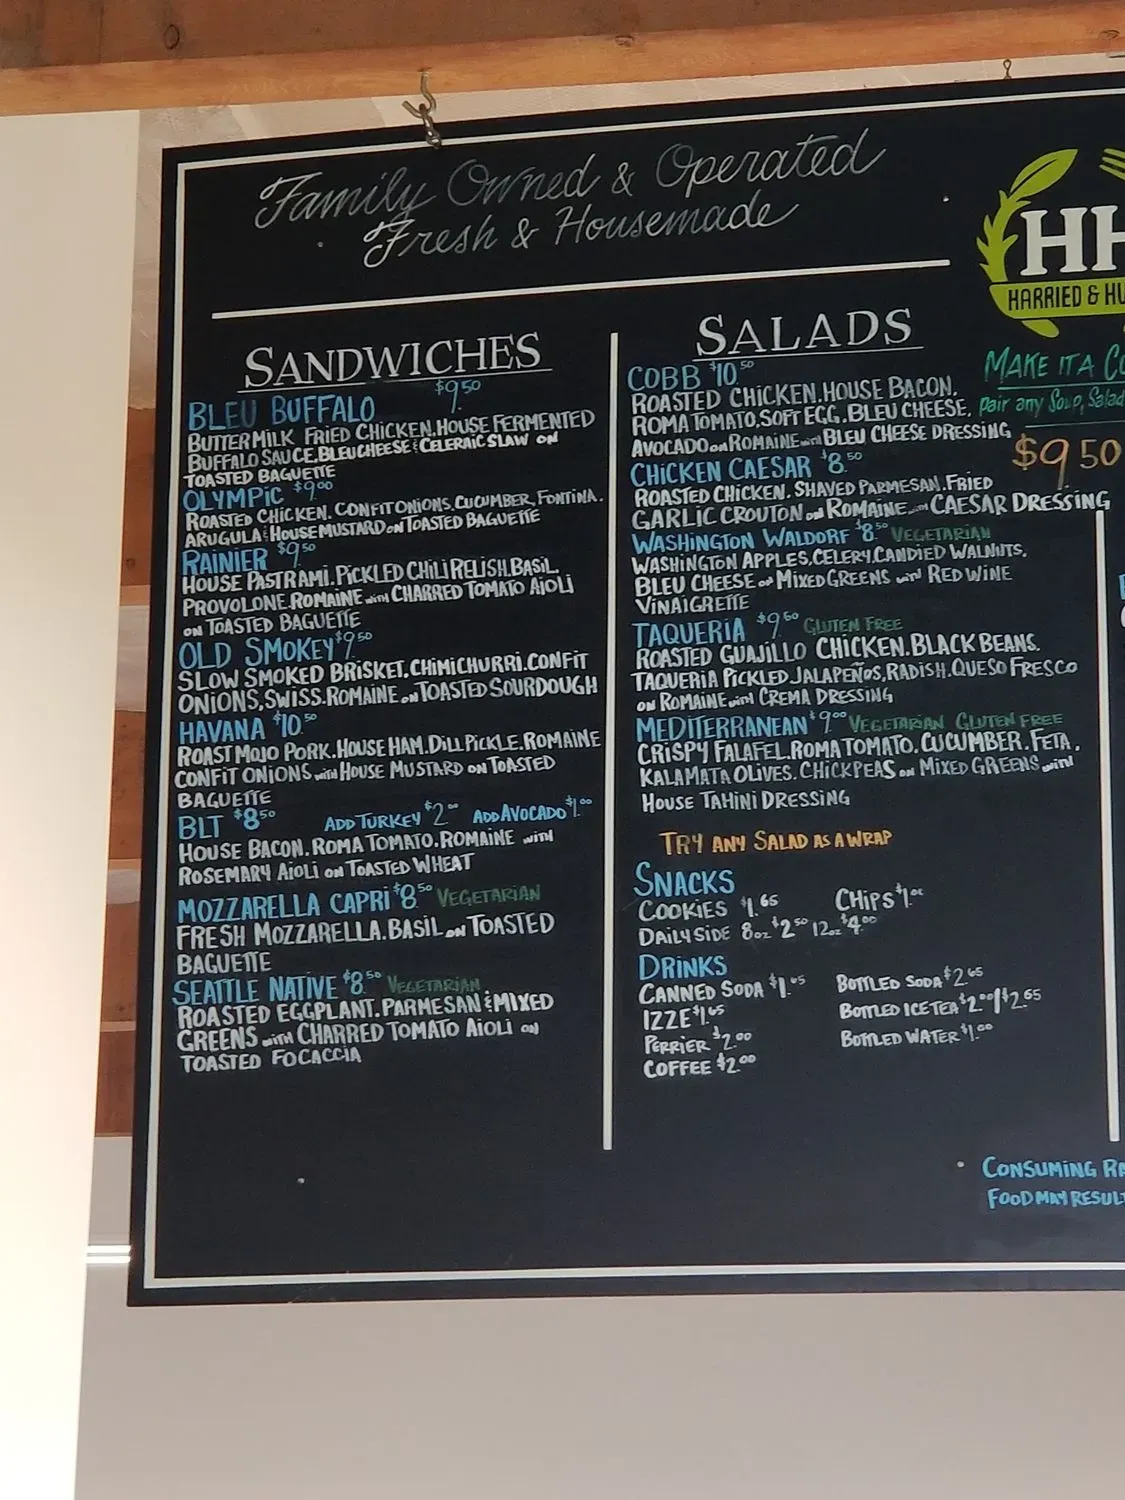 Family Owned & Operated
Fresh & Housemade
SANDWICHES
BLEU BUFFALO $9.50
BUTTERMILK FRIED CHICKEN. HOUSE FERMENTED
BUFFALO SAUCE. BLEU CHEESE & CELERAIC SLAW ON
TOASTED BAGUETTE
OLYMPIC $9.00
ROASTED CHICKEN. CONFIT ONIONS. CUCUMBER. FONTINA.
ARUGULA & HOUSE MUSTARD ON TOASTED BAGUETTE
RAINIER $9.50
HOUSE PASTRAMI. PICKLED CHILI RELISH. BASIL.
PROVOLONE. ROMAINE WITH CHARRED TOMATO AIOLI
ON TOASTED BAGUETTE
OLD SMOKEY $9.50
SLOW SMOKED BRISKET. CHIMICHURRI. CONFIT
ONIONS, SWISS. ROMAINE ON TOASTED SOURDOUGH
HAVANA $10.50
ROAST MOJO PORK. HOUSE HAM. DILL PICKLE. ROMAINE
CONFIT ONIONS WITH HOUSE MUSTARD ON TOASTED
BAGUETTE
BLT $8.50 ADD TURKEY $2.00 ADD AVOCADO $1.00
HOUSE BACON. ROMA TOMATO. ROMAINE WITH
ROSEMARY AIOLI ON TOASTED WHEAT
MOZZARELLA CAPRI $8.50 VEGETARIAN
FRESH MOZZARELLA. BASIL ON TOASTED
BAGUETTE
SEATTLE NATIVE $8.50 VEGETARIAN
ROASTED EGGPLANT. PARMESAN & MIXED
GREENS WITH CHARRED TOMATO AIOLI ON
TOASTED FOCACCIA
SALADS
COBB $10.50
ROASTED CHICKEN. HOUSE BACON.
ROMA TOMATO. SOFT EGG. BLEU CHEESE.
AVOCADO ON ROMAINE WITH BLEU CHEESE DRESSING
CHICKEN CAESAR $8.50
ROASTED CHICKEN. SHAVED PARMESAN. FRIED
GARLIC CROUTON ON ROMAINE WITH CAESAR DRESSING
WASHINGTON WALDORF $8.50 VEGETARIAN
WASHINGTON APPLES. CELERY. CANDIED WALNUTS.
BLEU CHEESE ON MIXED GREENS WITH RED WINE
VINAIGRETTE
TAQUERIA $9.00 GLUTEN FREE
ROASTED GUAJILLO CHICKEN. BLACK BEANS.
TAQUERIA PICKLED JALAPEÑOS. RADISH. QUESO FRESCO
ON ROMAINE WITH CREMA DRESSING
MEDITERRANEAN $9.00 VEGETARIAN GLUTEN FREE
CRISPY FALAFEL. ROMA TOMATO. CUCUMBER. FETA.
KALAMATA OLIVES. CHICKPEAS ON MIXED GREENS WITH
HOUSE TAHINI DRESSING
TRY ANY SALAD AS A WRAP
SNACKS
COOKIES $1.65 CHIPS $1.00
DAILY SIDE 8oz $2.50 12oz $4.00
DRINKS
CANNED SODA $1.65 BOTTLED SODA $2.65
IZZE $1.65 BOTTLED ICE TEA $2.00/$2.65
PERRIER $2.00 BOTTLED WATER $1.00
COFFEE $2.00
HH
HARRIED & HU
MAKE IT A CO
pair any Soup, Salad
$9.50
CONSUMING RA
FOOD MAY RESULT